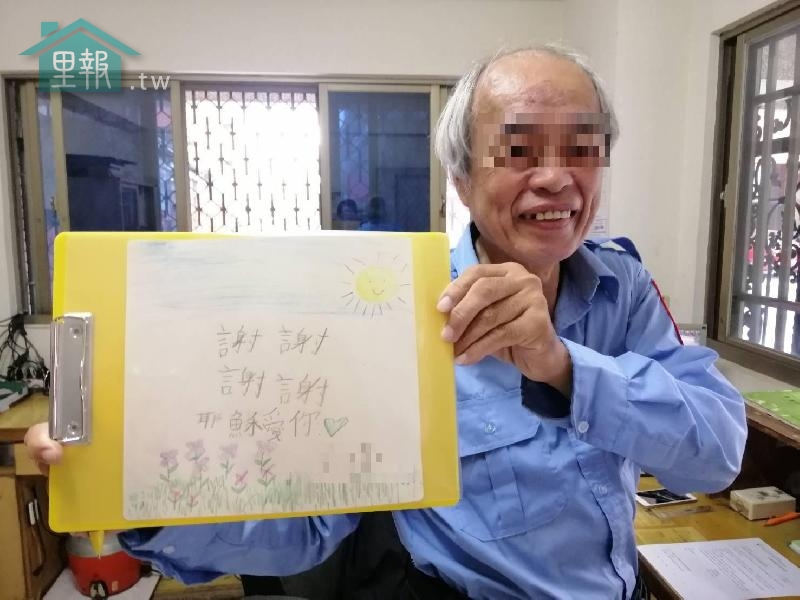 里報
.tw
謝謝
謝謝
耶穌愛你